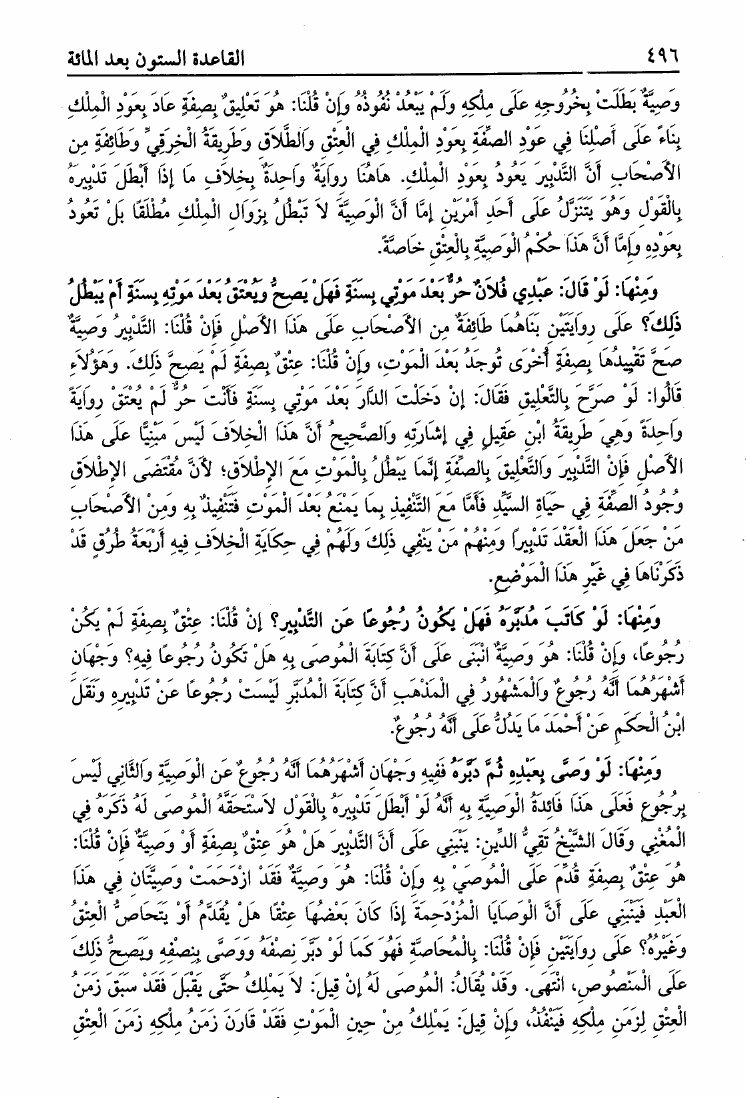 ٤٩٦
القاعدة الستون بعد المائة
وَصِيَّةٌ بَطَلَتْ بِخُرُوجِهِ عَلَى مِلْكِهِ وَلَمْ يَبْعُدْ نُفُوذُهُ وَإِنْ قُلْنَا: هُوَ تَعْلِيقٌ بِصِفَةٍ عَادَ بِعَوْدِ الْمِلْكِ
بِنَاءً عَلَى أَصْلِنَا فِي عَوْدِ الصِّفَةِ بِعَوْدِ الْمِلْكِ فِي الْعِتْقِ وَالطَّلَاقِ وَطَرِيقَةُ الْخِرَقِيِّ وَطَائِفَةٍ مِن
الأَصْحَابِ أَنَّ التَّدْبِيرَ يَعُودُ بِعَوْدِ الْمِلْكِ. هَاهُنَا رِوَايَةٌ وَاحِدَةٌ بِخِلَافِ مَا إِذَا أَبْطَلَ تَدْبِيرَهُ
بِالْقَوْلِ وَهُوَ يَتَنَزَّلُ عَلَى أَحَدِ أَمْرَيْنِ إِمَّا أَنَّ الْوَصِيَّةَ لاَ تَبْطُلُ بِزَوَالِ الْمِلْكِ مُطْلَقًا بَلْ تَعُودُ
بِعَوْدِهِ وَإِمَّا أَنَّ هَذَا حُكْمُ الْوَصِيَّةِ بِالْعِتْقِ خَاصَّةً.
وَمِنْهَا: لَوْ قَالَ: عَبْدِي فُلَانٌ حُرٌّ بَعْدَ مَوْتِي بِسَنَةٍ فَهَلْ يَصِحُّ وَيُعْتَقُ بَعْدَ مَوْتِهِ بِسَنَةٍ أَمْ يَبْطُلُ
ذَلِكَ؟ عَلَى رِوَايَتَيْنِ بَنَاهُمَا طَائِفَةٌ مِن الأَصْحَابِ عَلَى هَذَا الأَصْلِ فَإِنْ قُلْنَا: التَّدْبِيرُ وَصِيَّةٌ
صَحَّ تَقْيِيدُهَا بِصِفَةٍ أُخْرَى تُوجَدُ بَعْدَ الْمَوْتِ، وَإِنْ قُلْنَا: عِتْقٌ بِصِفَةٍ لَمْ يَصِحَّ ذَلِكَ. وَهَؤُلَاءِ
قَالُوا: لَوْ صَرَّحَ بِالتَّعْلِيقِ فَقَالَ: إِنْ دَخَلْتَ الدَّارَ بَعْدَ مَوْتِي بِسَنَةٍ فَأَنْتَ حُرٌّ لَمْ يُعْتَقْ رِوَايَةً
وَاحِدَةً وَهِيَ طَرِيقَةُ ابْنِ عَقِيلٍ فِي إِشَارَتِهِ وَالصَّحِيحُ أَنَّ هَذَا الْخِلَافَ لَيْسَ مَبْنِيًّا عَلَى هَذَا
الأَصْلِ فَإِنَّ التَّدْبِيرَ وَالتَّعْلِيقَ بِالصِّفَةِ إِنَّمَا يَبْطُلُ بِالْمَوْتِ مَعَ الإِطْلَاقِ؛ لأَنَّ مُقْتَضَى الإِطْلَاقِ
وُجُودُ الصِّفَةِ فِي حَيَاةِ السَّيِّدِ فَأَمَّا مَعَ التَّنْفِيذِ بِمَا يَمْنَعُ بَعْدَ الْمَوْتِ فَتَنْفِيذٌ بِهِ وَمِنْ الأَصْحَابِ
مَنْ جَعَلَ هَذَا الْعَقْدَ تَدْبِيرًا وَمِنْهُمْ مَنْ يَنْفِي ذَلِكَ وَلَهُمْ فِي حِكَايَةِ الْخِلَافِ فِيهِ أَرْبَعَةُ طُرُقٍ قَدْ
ذَكَرْنَاهَا فِي غَيْرِ هَذَا الْمَوْضِعِ.
وَمِنْهَا: لَوْ كَاتَبَ مُدَبَّرَهُ فَهَلْ يَكُونُ رُجُوعًا عَنِ التَّدْبِيرِ؟ إِنْ قُلْنَا: عِتْقٌ بِصِفَةٍ لَمْ يَكُنْ
رُجُوعًا، وَإِنْ قُلْنَا: هُوَ وَصِيَّةٌ انْبَنَى عَلَى أَنَّ كِتَابَةَ الْمُوصَى بِهِ هَلْ تَكُونُ رُجُوعًا فِيهِ؟ وَجْهَانِ
أَشْهَرُهُمَا أَنَّهُ رُجُوعٌ وَالْمَشْهُورُ فِي الْمَذْهَبِ أَنَّ كِتَابَةَ الْمُدَبَّرِ لَيْسَتْ رُجُوعًا عَنْ تَدْبِيرِهِ وَنَقَلَ
ابْنُ الْحَكَمِ عَنْ أَحْمَدَ مَا يَدُلُّ عَلَى أَنَّهُ رُجُوعٌ.
وَمِنْهَا: لَوْ وَصَّى بِعَبْدِهِ ثُمَّ دَبَّرَهُ فَفِيهِ وَجْهَانِ أَشْهَرُهُمَا أَنَّهُ رُجُوعٌ عَنِ الْوَصِيَّةِ وَالثَّانِي لَيْسَ
بِرُجُوعٍ فَعَلَى هَذَا فَائِدَةُ الْوَصِيَّةِ بِهِ أَنَّهُ لَوْ أَبْطَلَ تَدْبِيرَهُ بِالْقَوْلِ لاَسْتَحَقَّهُ الْمُوصَى لَهُ ذَكَرَهُ فِي
الْمُغْنِي وَقَالَ الشَّيْخُ تَقِيُّ الدِّينِ: يَنْبَنِي عَلَى أَنَّ التَّدْبِيرَ هَلْ هُوَ عِتْقٌ بِصِفَةٍ أَوْ وَصِيَّةٌ فَإِنْ قُلْنَا:
هُوَ عِتْقٌ بِصِفَةٍ قُدِّمَ عَلَى الْمُوصَيْ بِهِ وَإِنْ قُلْنَا: هُوَ وَصِيَّةٌ فَقَدْ ازْدَحَمَتْ وَصِيَّتَانِ فِي هَذَا
الْعَبْدِ فَيَنْبَنِي عَلَى أَنَّ الْوَصَايَا الْمُزْدَحِمَةَ إِذَا كَانَ بَعْضُهَا عِتْقًا هَلْ يُقَدَّمُ أَوْ يَتَحَاصُّ الْعِتْقُ
وَغَيْرُهُ؟ عَلَى رِوَايَتَيْنِ فَإِنْ قُلْنَا: بِالْمُحَاصَّةِ فَهُوَ كَمَا لَوْ دَبَّرَ نِصْفَهُ وَوَصَّى بِنِصْفِهِ وَيَصِحُّ ذَلِكَ
عَلَى الْمَنْصُوصِ، انْتَهَى. وَقَدْ يُقَالُ: الْمُوصَى لَهُ إِنْ قِيلَ: لاَ يَمْلِكُ حَتَّى يَقْبَلَ فَقَدْ سَبَقَ زَمَنُ
الْعِتْقِ لِزَمَنِ مِلْكِهِ فَيَنْفُذُ، وَإِنْ قِيلَ: يَمْلِكُ مِنْ حِينِ الْمَوْتِ فَقَدْ قَارَنَ زَمَنُ مِلْكِهِ زَمَنَ الْعِتْقِ